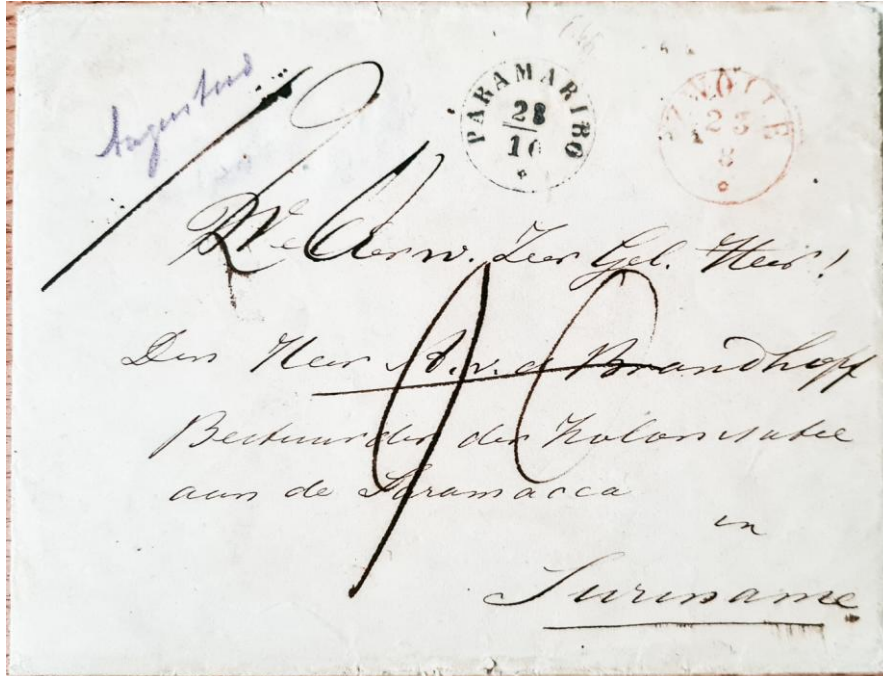 PARAMARIBO
28
10
ZWOLLE
23
8
WelEerw. Zeer Gel. Heer!
Den Heer A. v. d. Brandhoff
Bestuurder der Kolonisatie
aan de Saramacca
in
Suriname